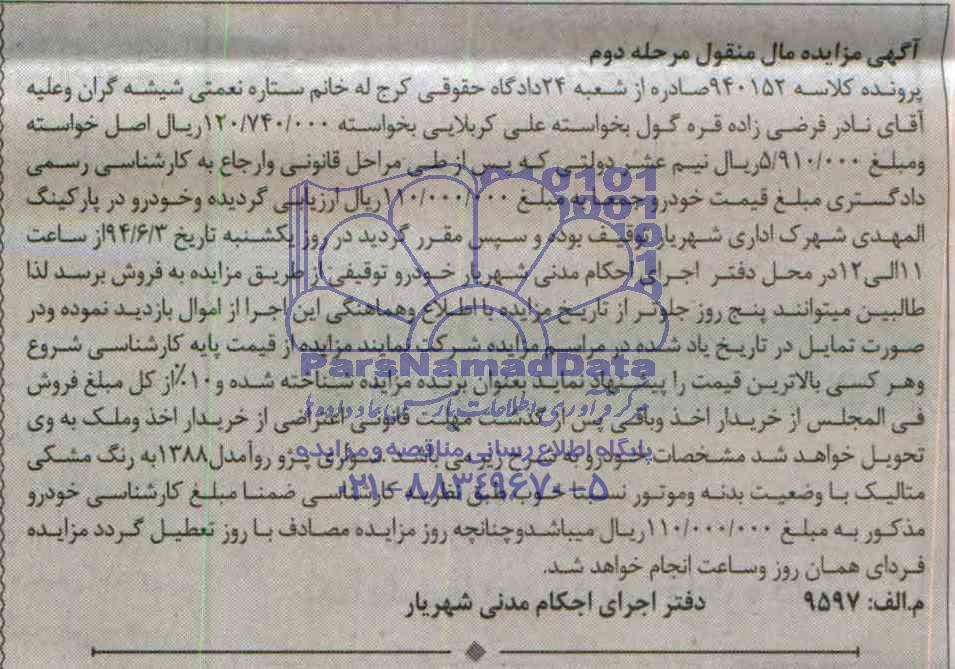 آگهی مزایده مال منقول مرحله دوم
پرونده کلاسه ۹۴۰۱۵۲صادره از شعبه ۲۴دادگاه حقوقی کرج له خانم ستاره نعمتی شیشه گران وعلیه
آقای نادر فرضی زاده قره گول بخواسته علی کربلایی بخواسته ۱۲۰/۷۴۰/۰۰۰ریال اصل خواسته
ومبلغ ۵/۹۱۰/۰۰۰ریال نیم عشر دولتی که پس از طی مراحل قانونی وارجاع به کارشناسی رسمی
دادگستری مبلغ قیمت خودرو جمعا به مبلغ ۱۱۰/۰۰۰/۰۰۰ریال ارزیابی گردیده وخودرو در پارکینگ
المهدی شهرک اداری شهریار توقیف بوده و سپس مقرر گردید در روز یکشنبه تاریخ ۹۴/۶/۳از ساعت
۱۱الی۱۲در محل دفتر اجرای احکام مدنی شهریار خودرو توقیفی از طریق مزایده به فروش برسد لذا
طالبین میتوانند پنج روز جلوتر از تاریخ مزایده با اطلاع وهماهنگی این اجرا از اموال بازدید نموده ودر
صورت تمایل در تاریخ یاد شده در مراسم مزایده شرکت نمایند مزایده از قیمت پایه کارشناسی شروع
وهر کسی بالاترین قیمت را پیشنهاد نماید بعنوان برنده مزایده شناخته شده و۱۰٪از کل مبلغ فروش
فی المجلس از خریدار اخذ وباقی پس از گذشت مهلت قانونی اعتراضی از خریدار اخذ وملک به وی
تحویل خواهد شد مشخصات خودرو به شرح زیر می باشد .سواری پژو روآمدل۱۳۸۸به رنگ مشکی
متالیک با وضعیت بدنه وموتور نسبتا خوب طبق نظریه کارشناسی ضمنا مبلغ کارشناسی خودرو
مذکور به مبلغ ۱۱۰/۰۰۰/۰۰۰ریال میباشدوچنانچه روز مزایده مصادف با روز تعطیل گردد مزایده
فردای همان روز وساعت انجام خواهد شد.
م.الف: ۹۵۹۷ دفتر اجرای اجکام مدنی شهریار
ParsNamadData
گردآوری اطلاعات پارس نماد داده ها
پایگاه اطلاع رسانی مناقصه و مزایده
۰۲۱-۸۸۳۴۹۶۷۰-۵